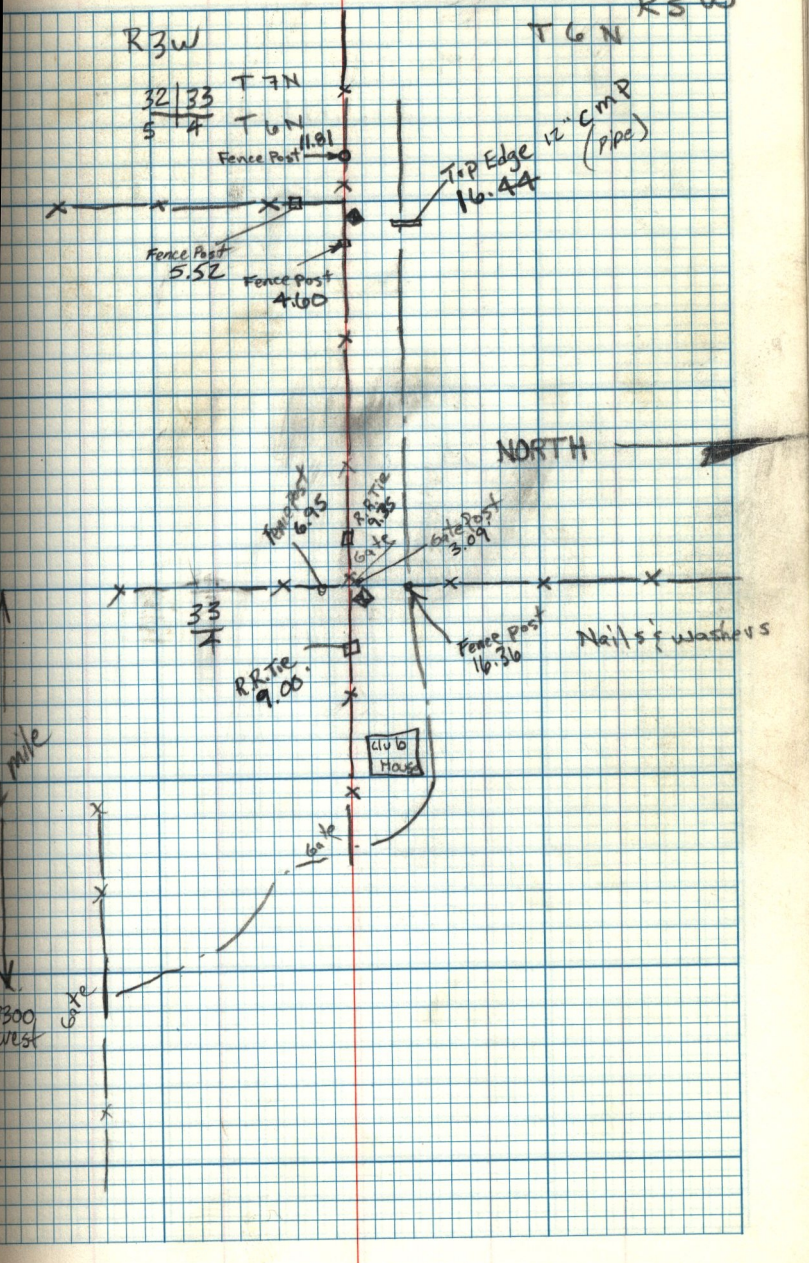 R3W
T 6 N
R3W
32 | 33 T 7N
5 | 4 T 6 N
11.81
Fence Post
Top Edge 12" CMP
(pipe)
16.44
Fence Post
5.52
Fence Post
4.60
NORTH
Fence Post
6.95
R.R. Tie
9.35
Gate
Gate Post
3.09
33
4
Fence post
16.36
Nails & washers
R.R. Tie
9.00
mile
Club
House
Gate
Gate
300
west